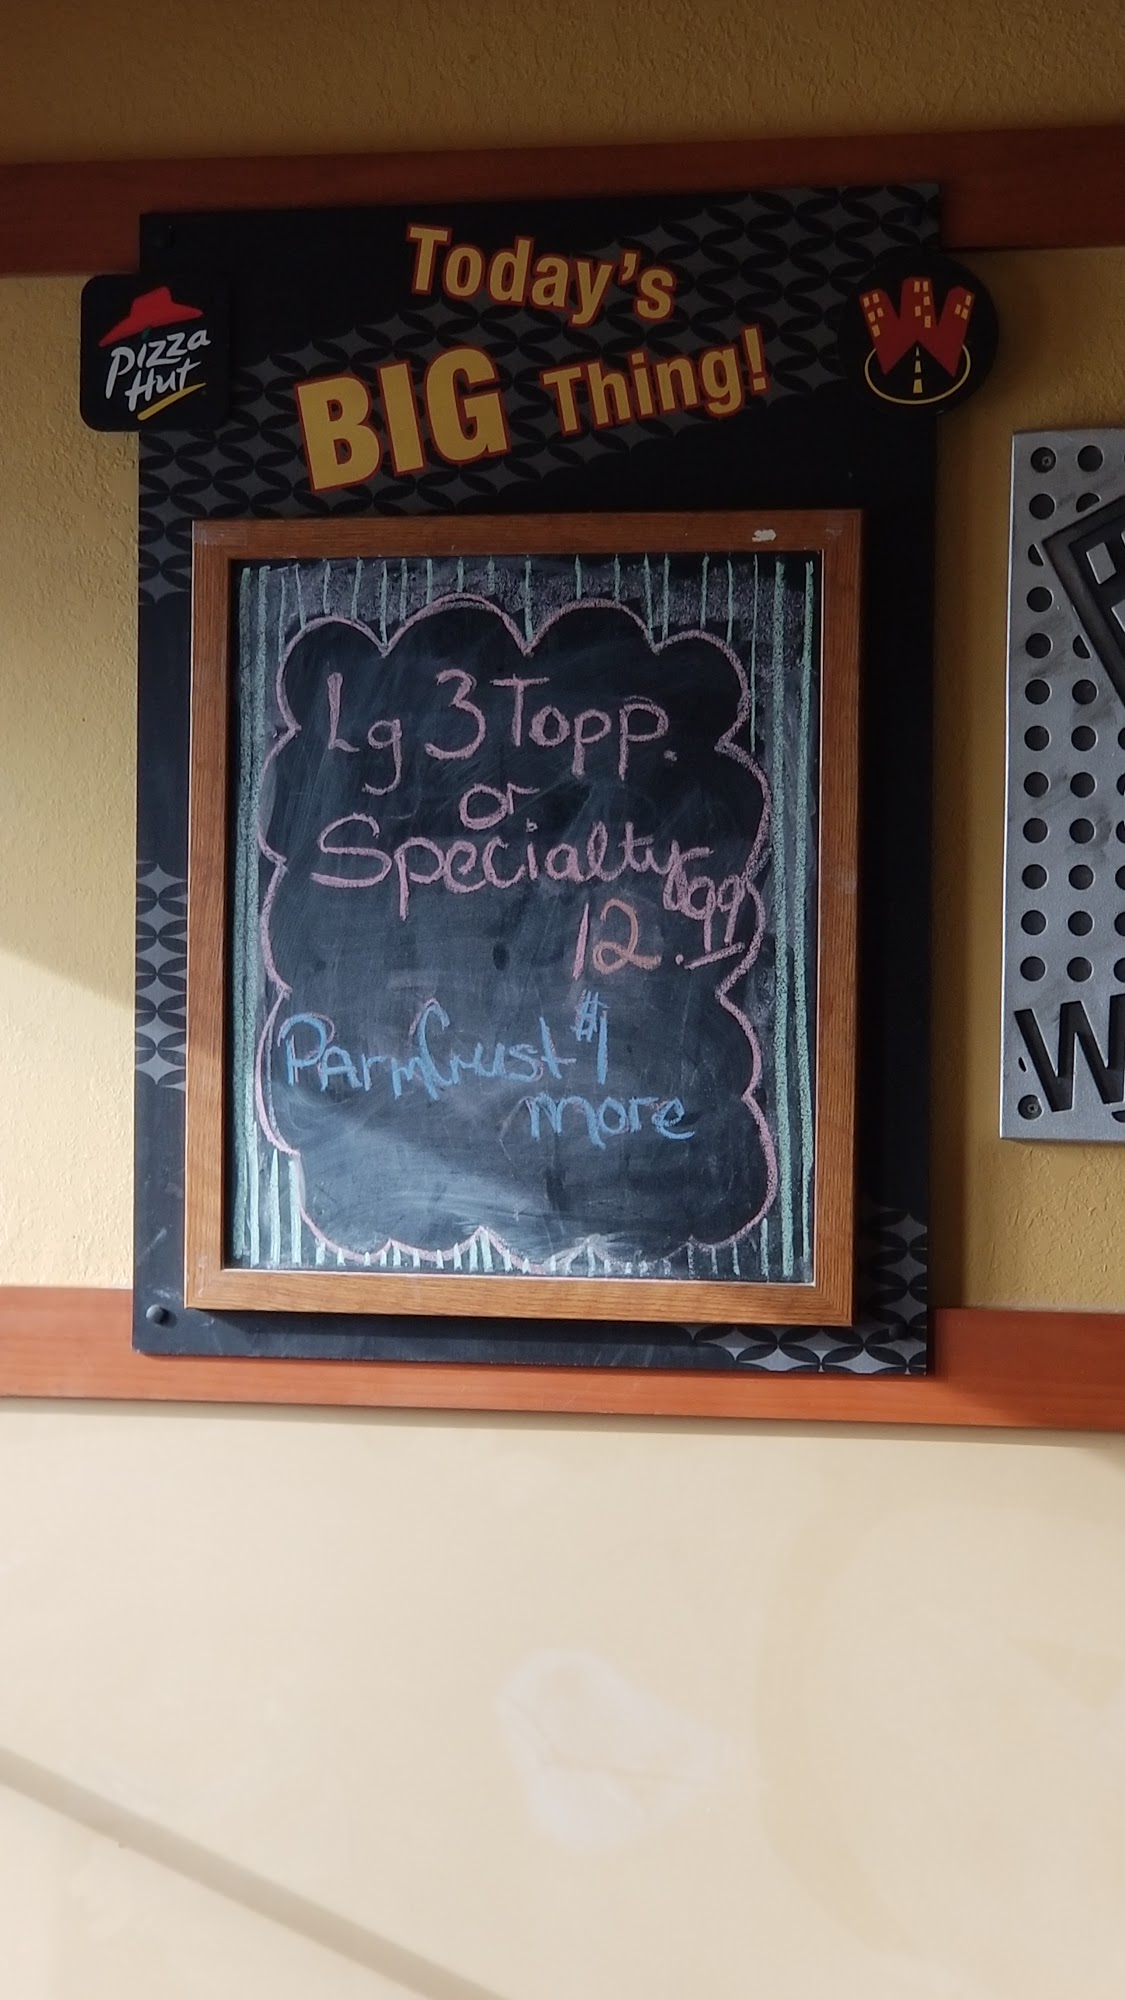 Today's
BIG Thing!
Pizza
Hut
W
Lg 3 Topp.
or
Specialty
12.99
ParmCrust $1
more
W